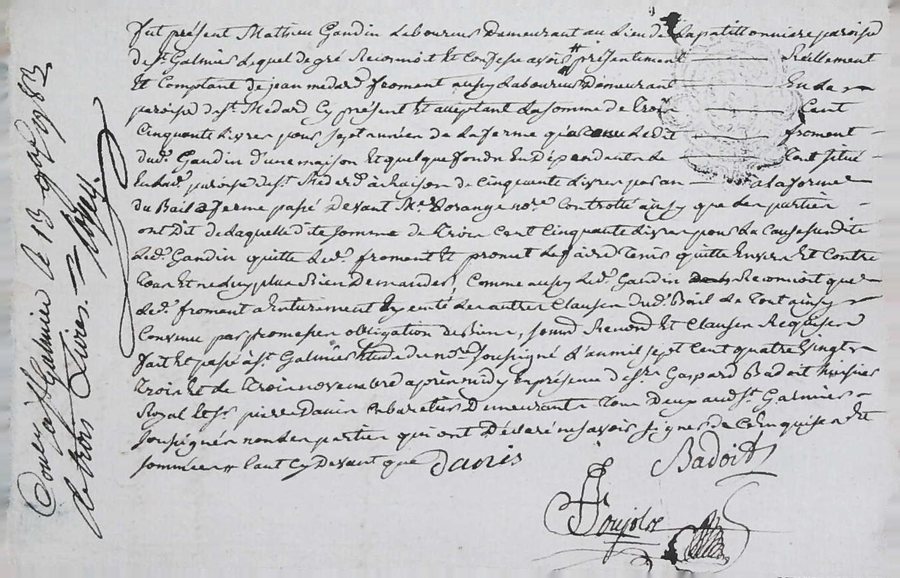 fut présent Mathieu Gaudin Laboureur Demeurant au Lieu de Lapatillonniere paroisse
de st Galmier Lequel de gré Reconnoit Et Confesse avoir présentement Réellement
Et Comptant de jean medard froment aussy Laboureur Demeurant En La
paroisse de st Medard Cy présent Et acceptant La Somme de trois Cent
Cinquante Livres pour Sept années de La ferme Ledit froment
dud. Gaudin d'une maison Et quelque fonds En Dépendants Le tout situé
En lad. paroisse de st Medard à Raison de Cinquante Livres par an a la forme
du Bail a ferme passé Devant Me Vorange nore Controllé aussy que Les parties
ont Dit de Laquelle dite Somme de trois Cent Cinquante Livres pour La Cause susdite
Led. Gaudin quitte Led. froment Et promet Le faire Tenir quitte Envers Et Contre
Tous Et ne luy plus Rien Demander, Comme aussy Led. Gaudin Reconnoit que
Led. froment a Entierement Exenté Les autres Clauses dud. Bail Le Tout ainsy
Convenu par promesses obligation de Biens, Renond Et Clauses Requises
fait Et passé à st Galmier Etude du nore soussigné L'an mil sept Cent quatre vingt
Trois Et Le Trois novembre après midy En présence de sr Gaspard Badoit huissier
Royal Et sr pierre Davin Cabaretier Demeurants Tous Deux aud. st Galmier
soussignés non Les parties qui ont Déclaré ne savoir signer de Ce Enquises Et
sommées # Cy Devant que
Davin Badoit
Poujolat
Con. a st Galmier le 13 9bre 1783
de trois Livres.